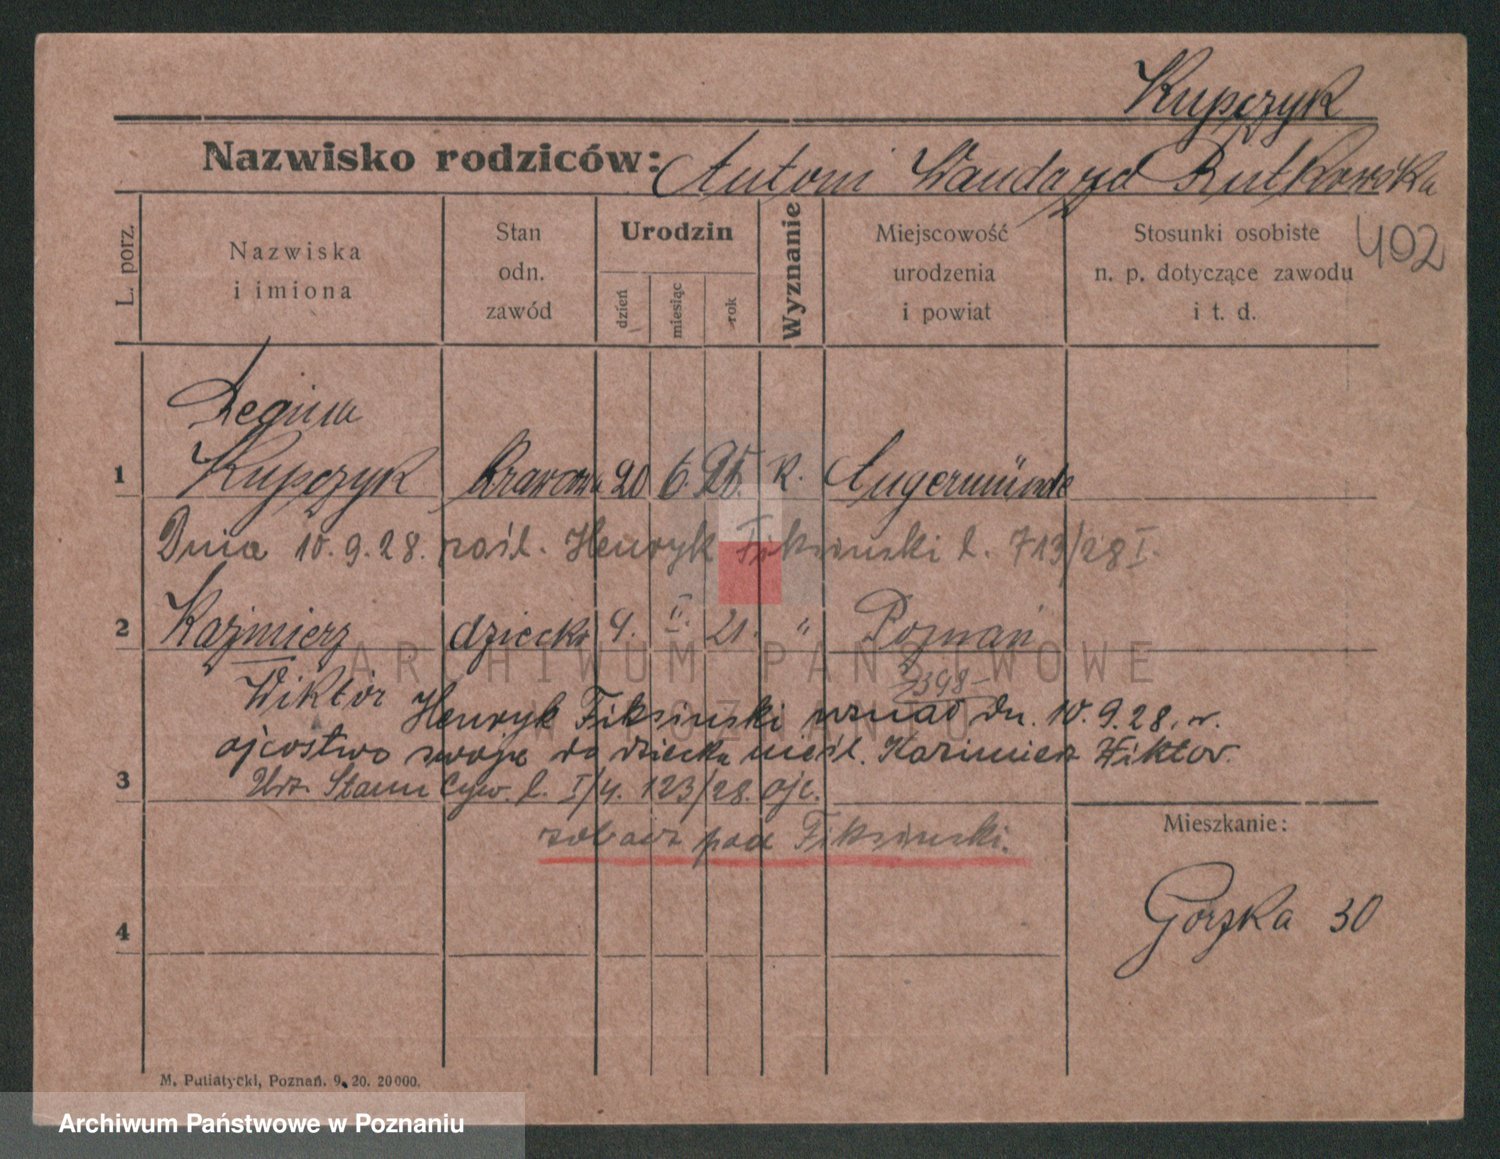 Kupczyk
Nazwisko rodziców: Antoni Wanda zd Rutkowska
402
L. porz.
Nazwiska
i imiona
Stan
odn.
zawód
Urodzin
dzień
miesiąc
rok
Wyznanie
Miejscowość
urodzenia
i powiat
Stosunki osobiste
n. p. dotyczące zawodu
i t. d.
Regina
1 Kupczyk 20 6 95. k. Angermünde
Dnia 10.9.28. pośl. Henryk Fiksinski l. 713/28 I.
2 Kaźmierz dziecko 9. II. 21. " Poznań
2398-
Wiktor Henryk Fiksinski uznał dn. 10.9.28. r.
ojcostwo swoje do dziecka nieśl. Kazimierz Wiktor.
3 Urz. Stanu Cyw. l. I/4. 123/28. ojc.
zobacz pod Fiksinski.
Mieszkanie:
Górzka 30
4
M. Putiatycki, Poznań. 9. 20. 20000.
ARCHIWUM PAŃSTWOWE
W POZNANIU
Archiwum Państwowe w Poznaniu